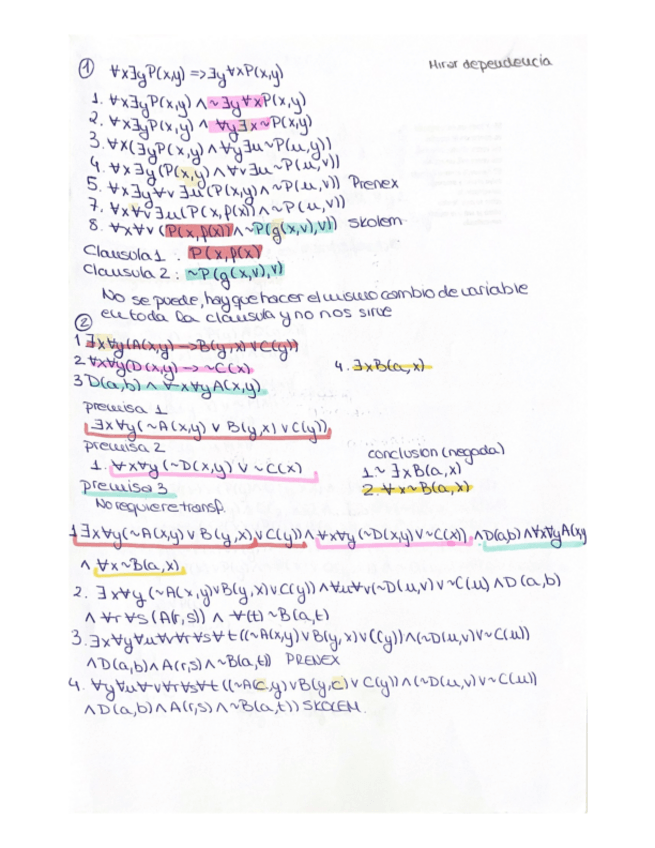 ① ∀x∃yP(x,y) => ∃y∀xP(x,y)
Mirar dependencia
1. ∀x∃yP(x,y) ∧ ~∃y∀xP(x,y)
2. ∀x∃yP(x,y) ∧ ∀y∃x~P(x,y)
3. ∀x(∃yP(x,y) ∧ ∀y∃u~P(u,y))
4. ∀x∃y(P(x,y) ∧ ∀v∃u~P(u,v))
5. ∀x∃y∀v∃u(P(x,y) ∧ ~P(u,v)) Prenex
7. ∀x∀v∃u(P(x,f(x)) ∧ ~P(u,v))
8. ∀x∀v(P(x,f(x)) ∧ ~P(g(x,v),v)) Skolem
Clausula 1 : P(x,f(x)
Clausula 2 : ~P(g(x,v),v)
No se puede, hay que hacer el mismo cambio de variable
en toda la clausula y no nos sirve
②
1 ∃x∀y(A(x,y) -> B(y,x) ∨ C(y))
2 ∀x∀y(D(x,y) -> ~C(x)
4. ∃xB(a,x)
3 D(a,b) ∧ ∀x∀yA(x,y)
premisa 1
∃x∀y(~A(x,y) ∨ B(y,x) ∨ C(y))
premisa 2
conclusion (negada)
1. ∀x∀y(~D(x,y) ∨ ~C(x)
1. ~∃xB(a,x)
premisa 3
2. ∀x~B(a,x)
No requiere transf.
1 ∃x∀y(~A(x,y) ∨ B(y,x) ∨ C(y)) ∧ ∀x∀y(~D(x,y) ∨ ~C(x)) ∧ D(a,b) ∧ ∀x∀yA(x,y
∧ ∀x~B(a,x)
2. ∃x∀y(~A(x,y) ∨ B(y,x) ∨ C(y)) ∧ ∀u∀v(~D(u,v) ∨ ~C(u) ∧ D(a,b)
∧ ∀r∀s(A(r,s)) ∧ ∀(t)~B(a,t)
3. ∃x∀y∀u∀v∀r∀s∀t((~A(x,y) ∨ B(y,x) ∨ C(y)) ∧ (~D(u,v) ∨ ~C(u))
∧ D(a,b) ∧ A(r,s) ∧ ~B(a,t)) PRENEX
4. ∀y∀u∀v∀r∀s∀t((~A(c,y) ∨ B(y,c) ∨ C(y)) ∧ (~D(u,v) ∨ ~C(u))
∧ D(a,b) ∧ A(r,s) ∧ ~B(a,t)) SKOLEM.